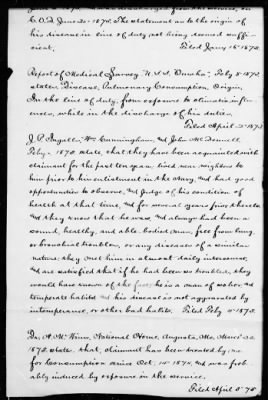 C.O.D. June 30-1875. The statement as to the origin
of his disease in line of duty not being deemed suffi-
cient. Filed Jany 16-1878.
Report of Medical Survey, U.S.S. "Omaha", Feby 5-1872,
states, Disease, Pulmonary Consumption, Origin
In the line of duty, from exposure to climatic influ-
ences, while in the discharge of his duties.
Filed April 3-1873.
J. P. Cunningham, and John McDonnell
Feby 1878 state, that they have been acquainted with
claimant for the past ten years, lived near neighbors to
him prior to his enlistment in the Navy and had good
opportunities to observe, and judge of his condition of
health at that time, and for several years prior thereto
and they know that he was, and always had been a
sound, healthy, and able-bodied man, free from lung,
or bronchial troubles, or any diseases of a similar
nature; they met him in almost daily intercourse,
and are satisfied that if he had been so troubled, they
would have known of the fact; he is a man of sober, and
temperate habits and his disease is not aggravated by
intemperance, or other bad habits. Filed Feby 1878.
Dr. National Home, Augusta, Me. March 30
1878. state, that, claimant has been treated by me
for Consumption since Oct. 14-1874, and was prob-
ably induced by exposure in the service.
Filed April 5-78.